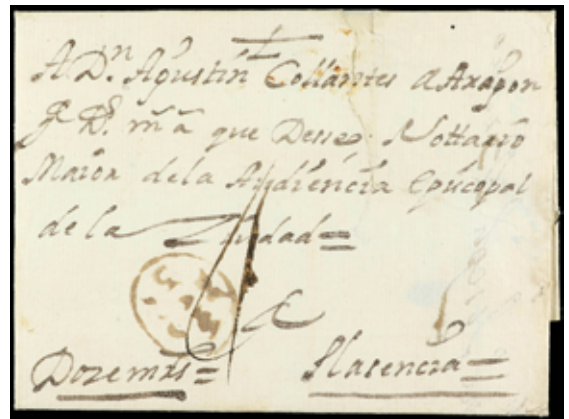 A Dn. Agustin Collantes de Aragon
g Ds. m a que Desseo. Nottario
Maior dela Audiencia Epucopal
de la Ziudad=
Doze mrs= Plazencia=